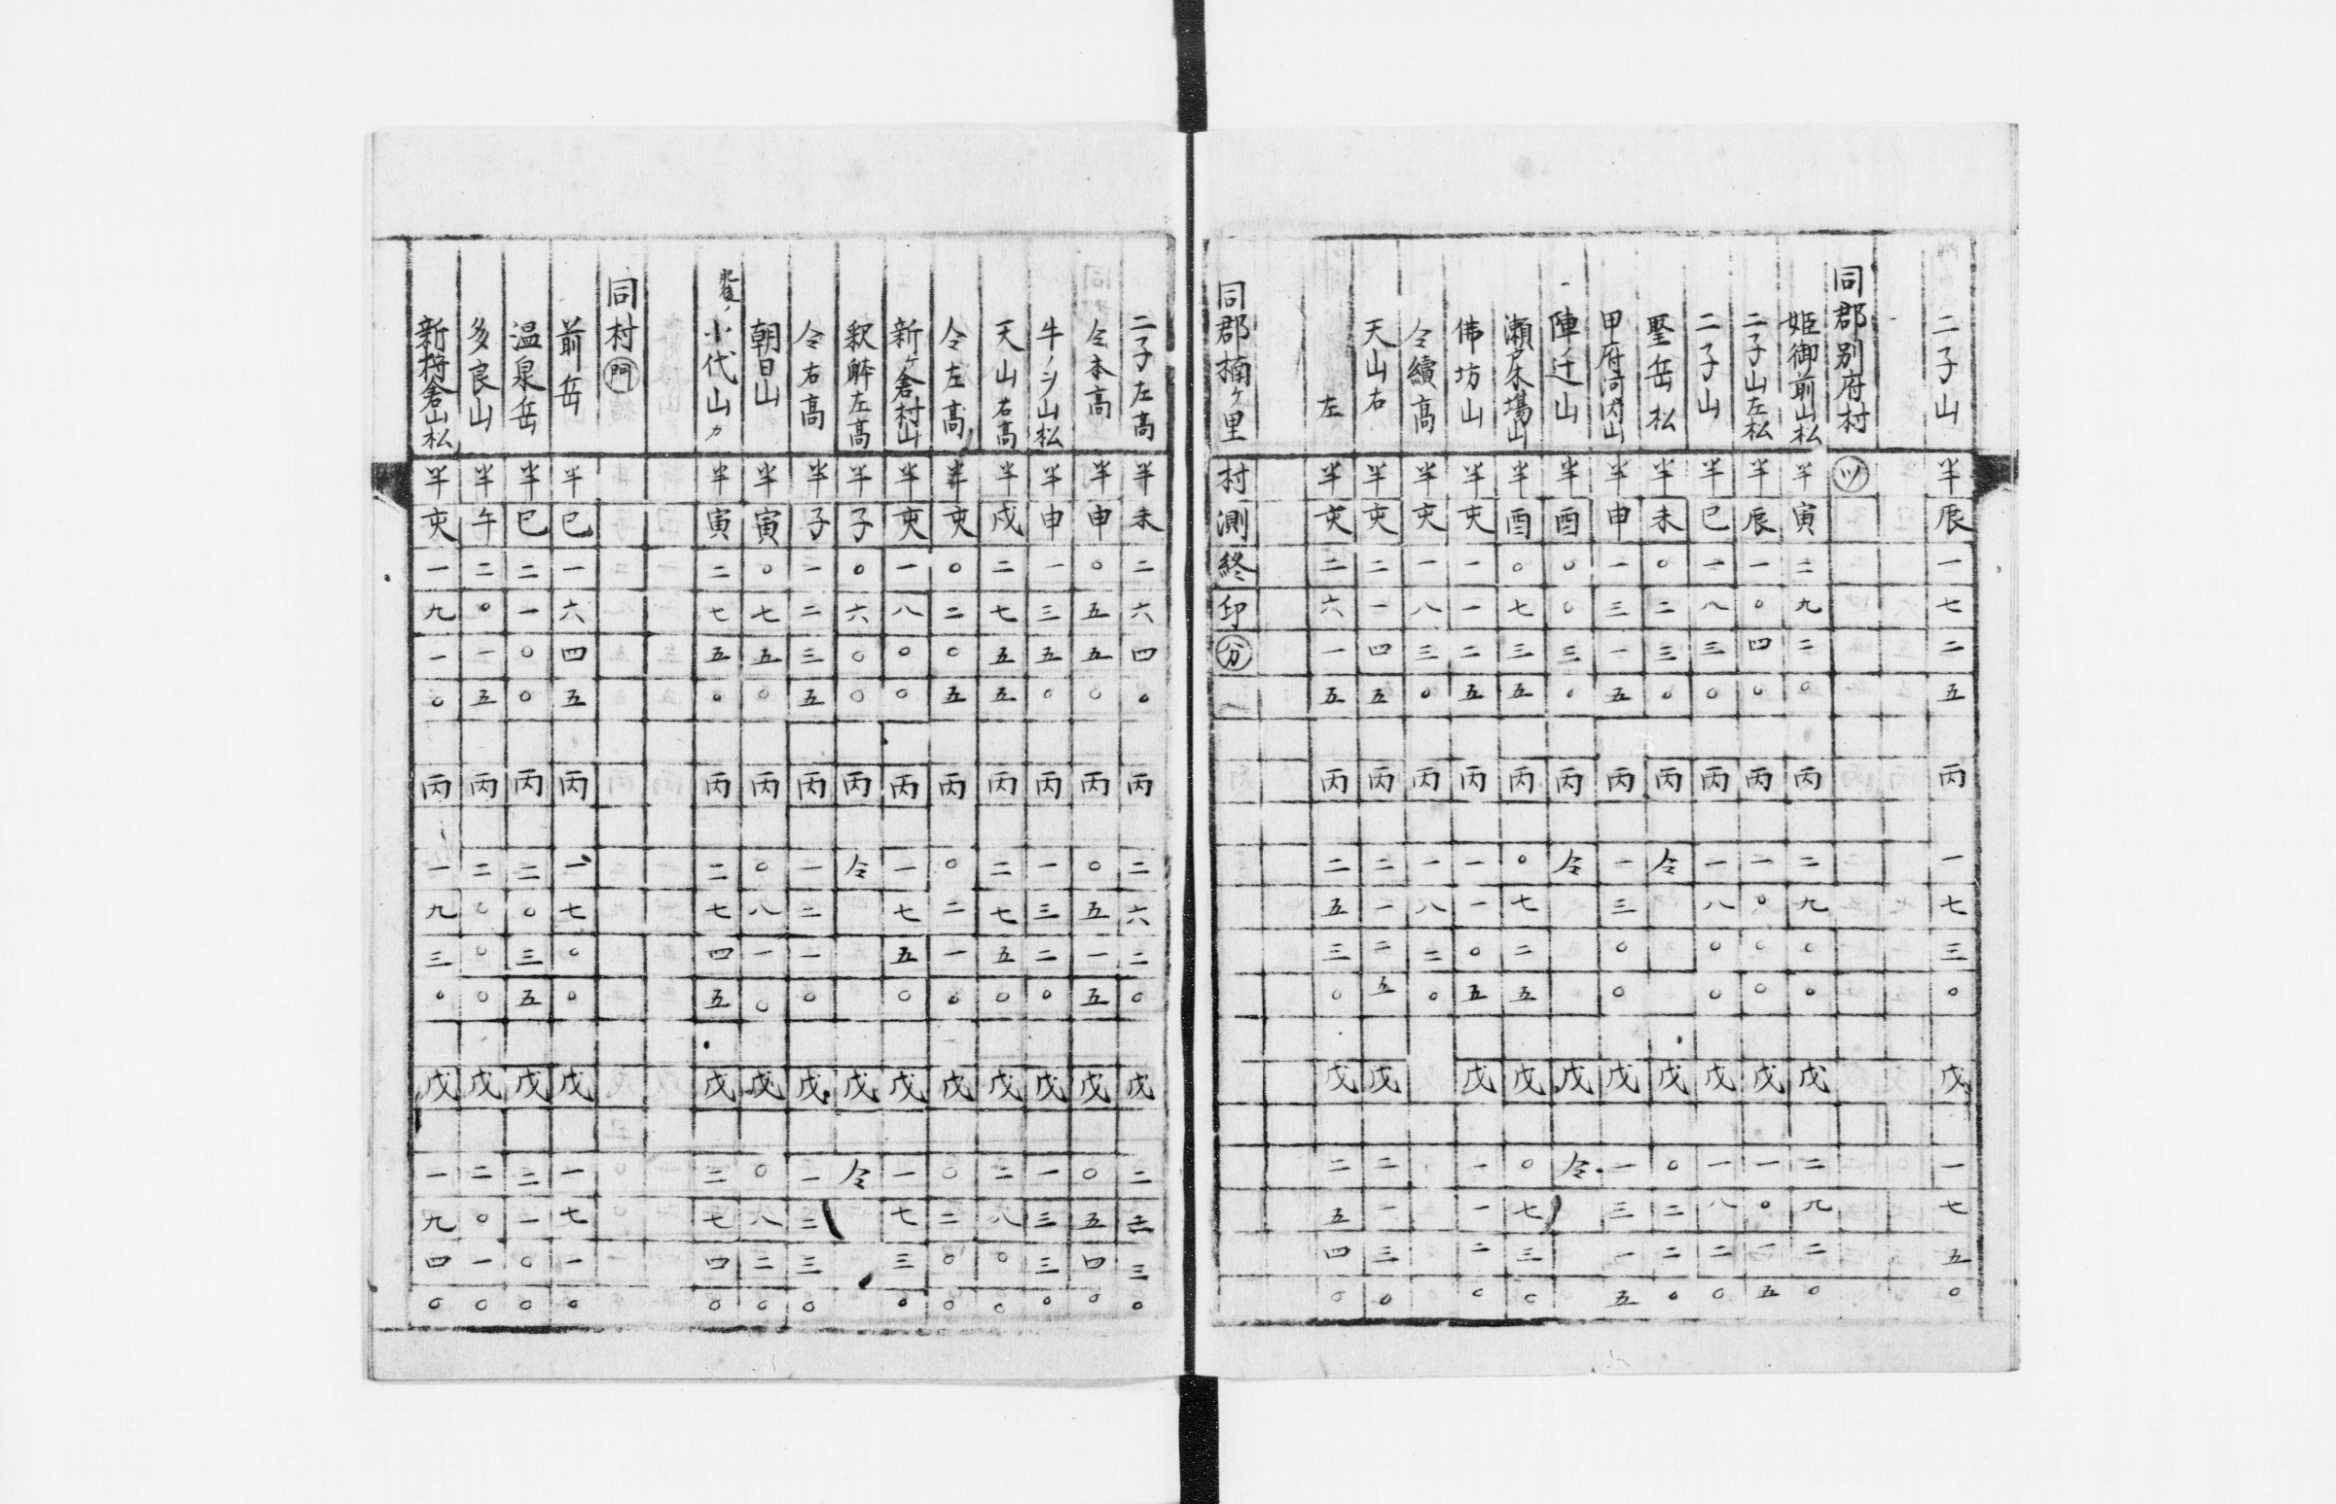 二子山 半辰一七二五 丙一七三〇 戊一七五〇
同郡別府村 ㋡
姫御前山松 半寅二九二〇 丙二九〇〇 戊二九二〇
二子山左松 半辰一〇四〇 丙一〇〇〇 戊一〇一五
二子山 半巳一八三〇 丙一八〇〇 戊一八二〇
聖岳松 半未〇二三〇 丙仝 戊〇二二〇
甲府河内山 半申一三一五 丙一三〇〇 戊一三一五
陣辻山 半酉〇〇三〇 丙仝 戊仝
瀬戸木場山 半酉〇七三五 丙〇七二五 戊〇七三〇
佛坊山 半亥一一二五 丙一一〇五 戊一一二〇
仝續高 半亥一八三〇 丙一八二〇
天山右 半亥二一四五 丙二一二五 戊二一三〇
左 半亥二六一五 丙二五三〇 戊二五四〇
同郡楠ヶ里村測終印㊎
二子左高 半未二六四〇 丙二六二〇 戊二三三〇
仝本高 半申〇五五〇 丙〇五一五 戊〇五四〇
牛ノシ山松 半申一三五〇 丙一三二〇 戊一三三〇
天山右高 半戌二七五五 丙二七五〇 戊二八〇〇
仝左高 半亥〇二〇五 丙〇二一〇 戊〇二〇〇
新ヶ倉村山 半亥一八〇〇 丙一七五〇 戊一七三〇
釈 左高 半子〇六〇〇 丙仝 戊仝
仝右高 半子一二三五 丙一二一〇 戊一二三〇
朝日山 半寅〇七五〇 丙〇八一〇 戊〇八二〇
肥後ノ小代山カ 半寅二七五〇 丙二七四五 戊二七四〇
同村 ㊀
前岳 半巳一六四五 丙一七〇〇 戊一七一〇
温泉岳 半巳二一〇〇 丙二〇三五 戊二一〇〇
多良山 半午二〇一五 丙二〇〇〇 戊二〇一〇
新 倉山松 半亥一九一〇 丙一九三〇 戊一九四〇